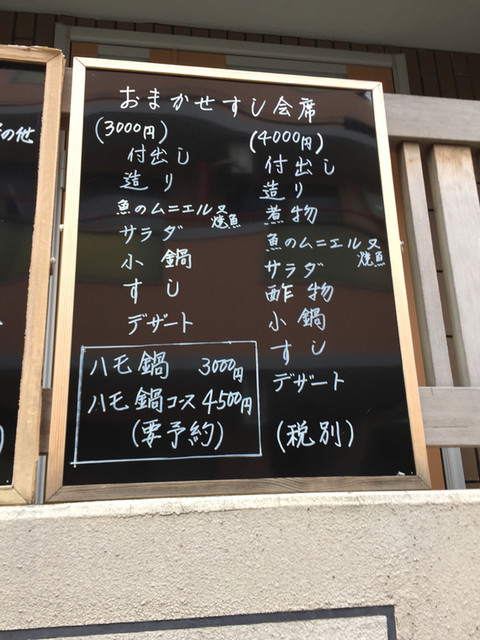 の他
おまかせすし会席
(3000円)
付出し
造り
魚のムニエル又
焼魚
サラダ
小鍋
すし
デザート
(4000円)
付出し
造り
煮物
魚のムニエル又
焼魚
サラダ
酢物
小鍋
すし
デザート
(税別)
ハモ鍋 3000円
ハモ鍋コース 4500円
(要予約)